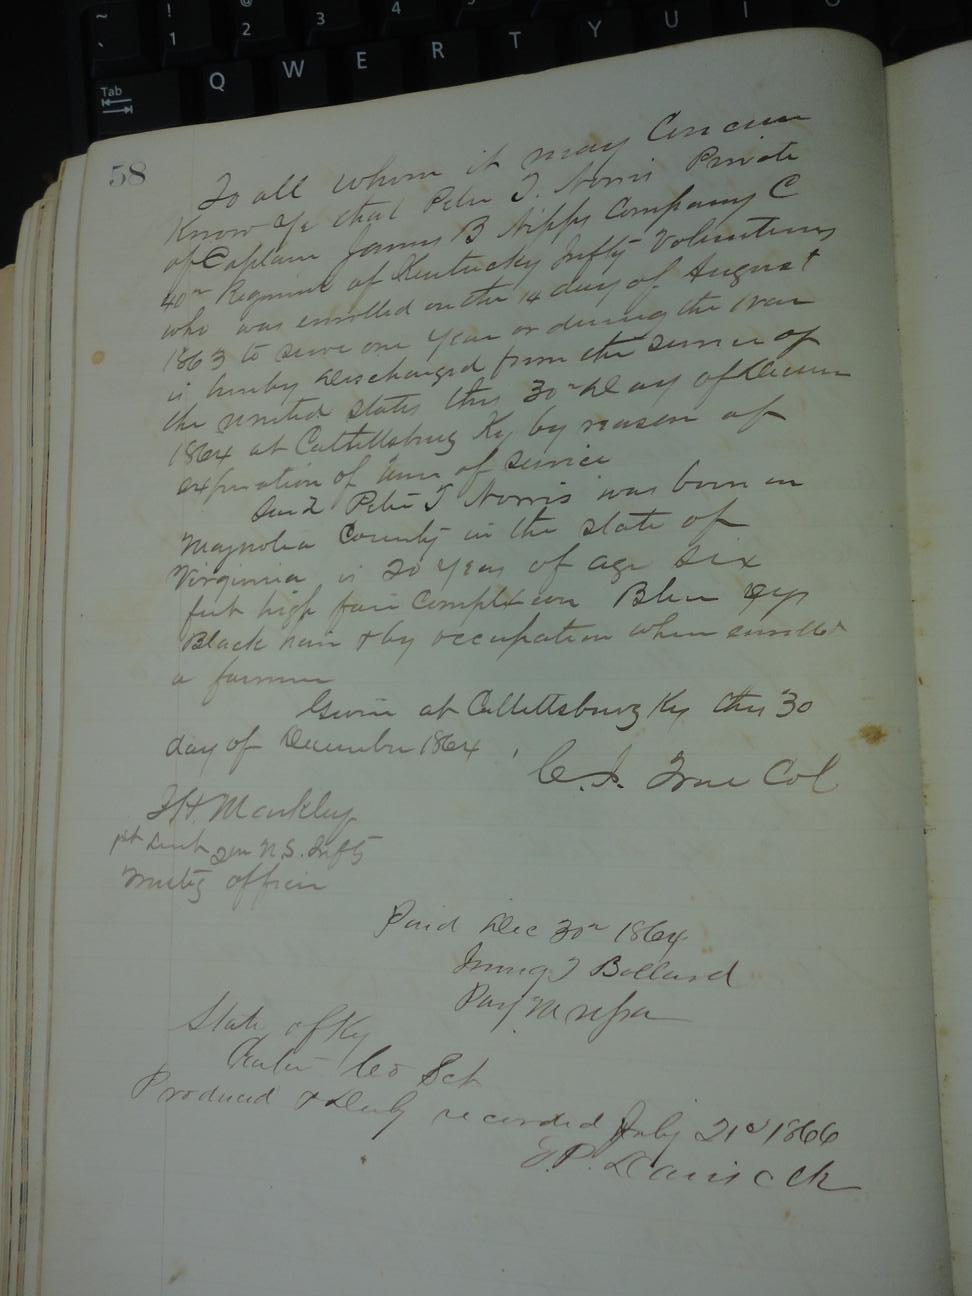 ~ ! @
` 1 2 3 4
Tab Q W E R T Y U I O
58
To all whom it may Concern
Know Ye that Peter T. Norris Private
of Captain James B Nipps Company C
40th Regiment of Kentucky Infty Volunteers
who was enrolled on the 14 day of August
1863 to serve one year or during the war
is hereby discharged from the service of
the united states this 30th day of
1864 at Cattettsburg Ky by reason of
expiration of term of service
Said Peter T Norris was born in
Magnolia County in the state of
Virginia is 20 years of age six
feet high fair complexion Blue eyes
Black hair & by occupation when enrolled
a farmer
Given at Cattettsburg Ky this 30
day of December 1864
C. J. True Col
Markley
1st Lieut Infty
officer
Paid Dec 30th 1864
Bollard
Pay M
State of Ky
Carter Co Sct
Produced & Duly recorded July 21st 1866